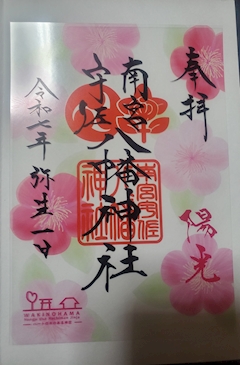 奉拝
陽光
南宮
宇佐
八幡神社
令和七年 弥生一日
WAKINOHAMA